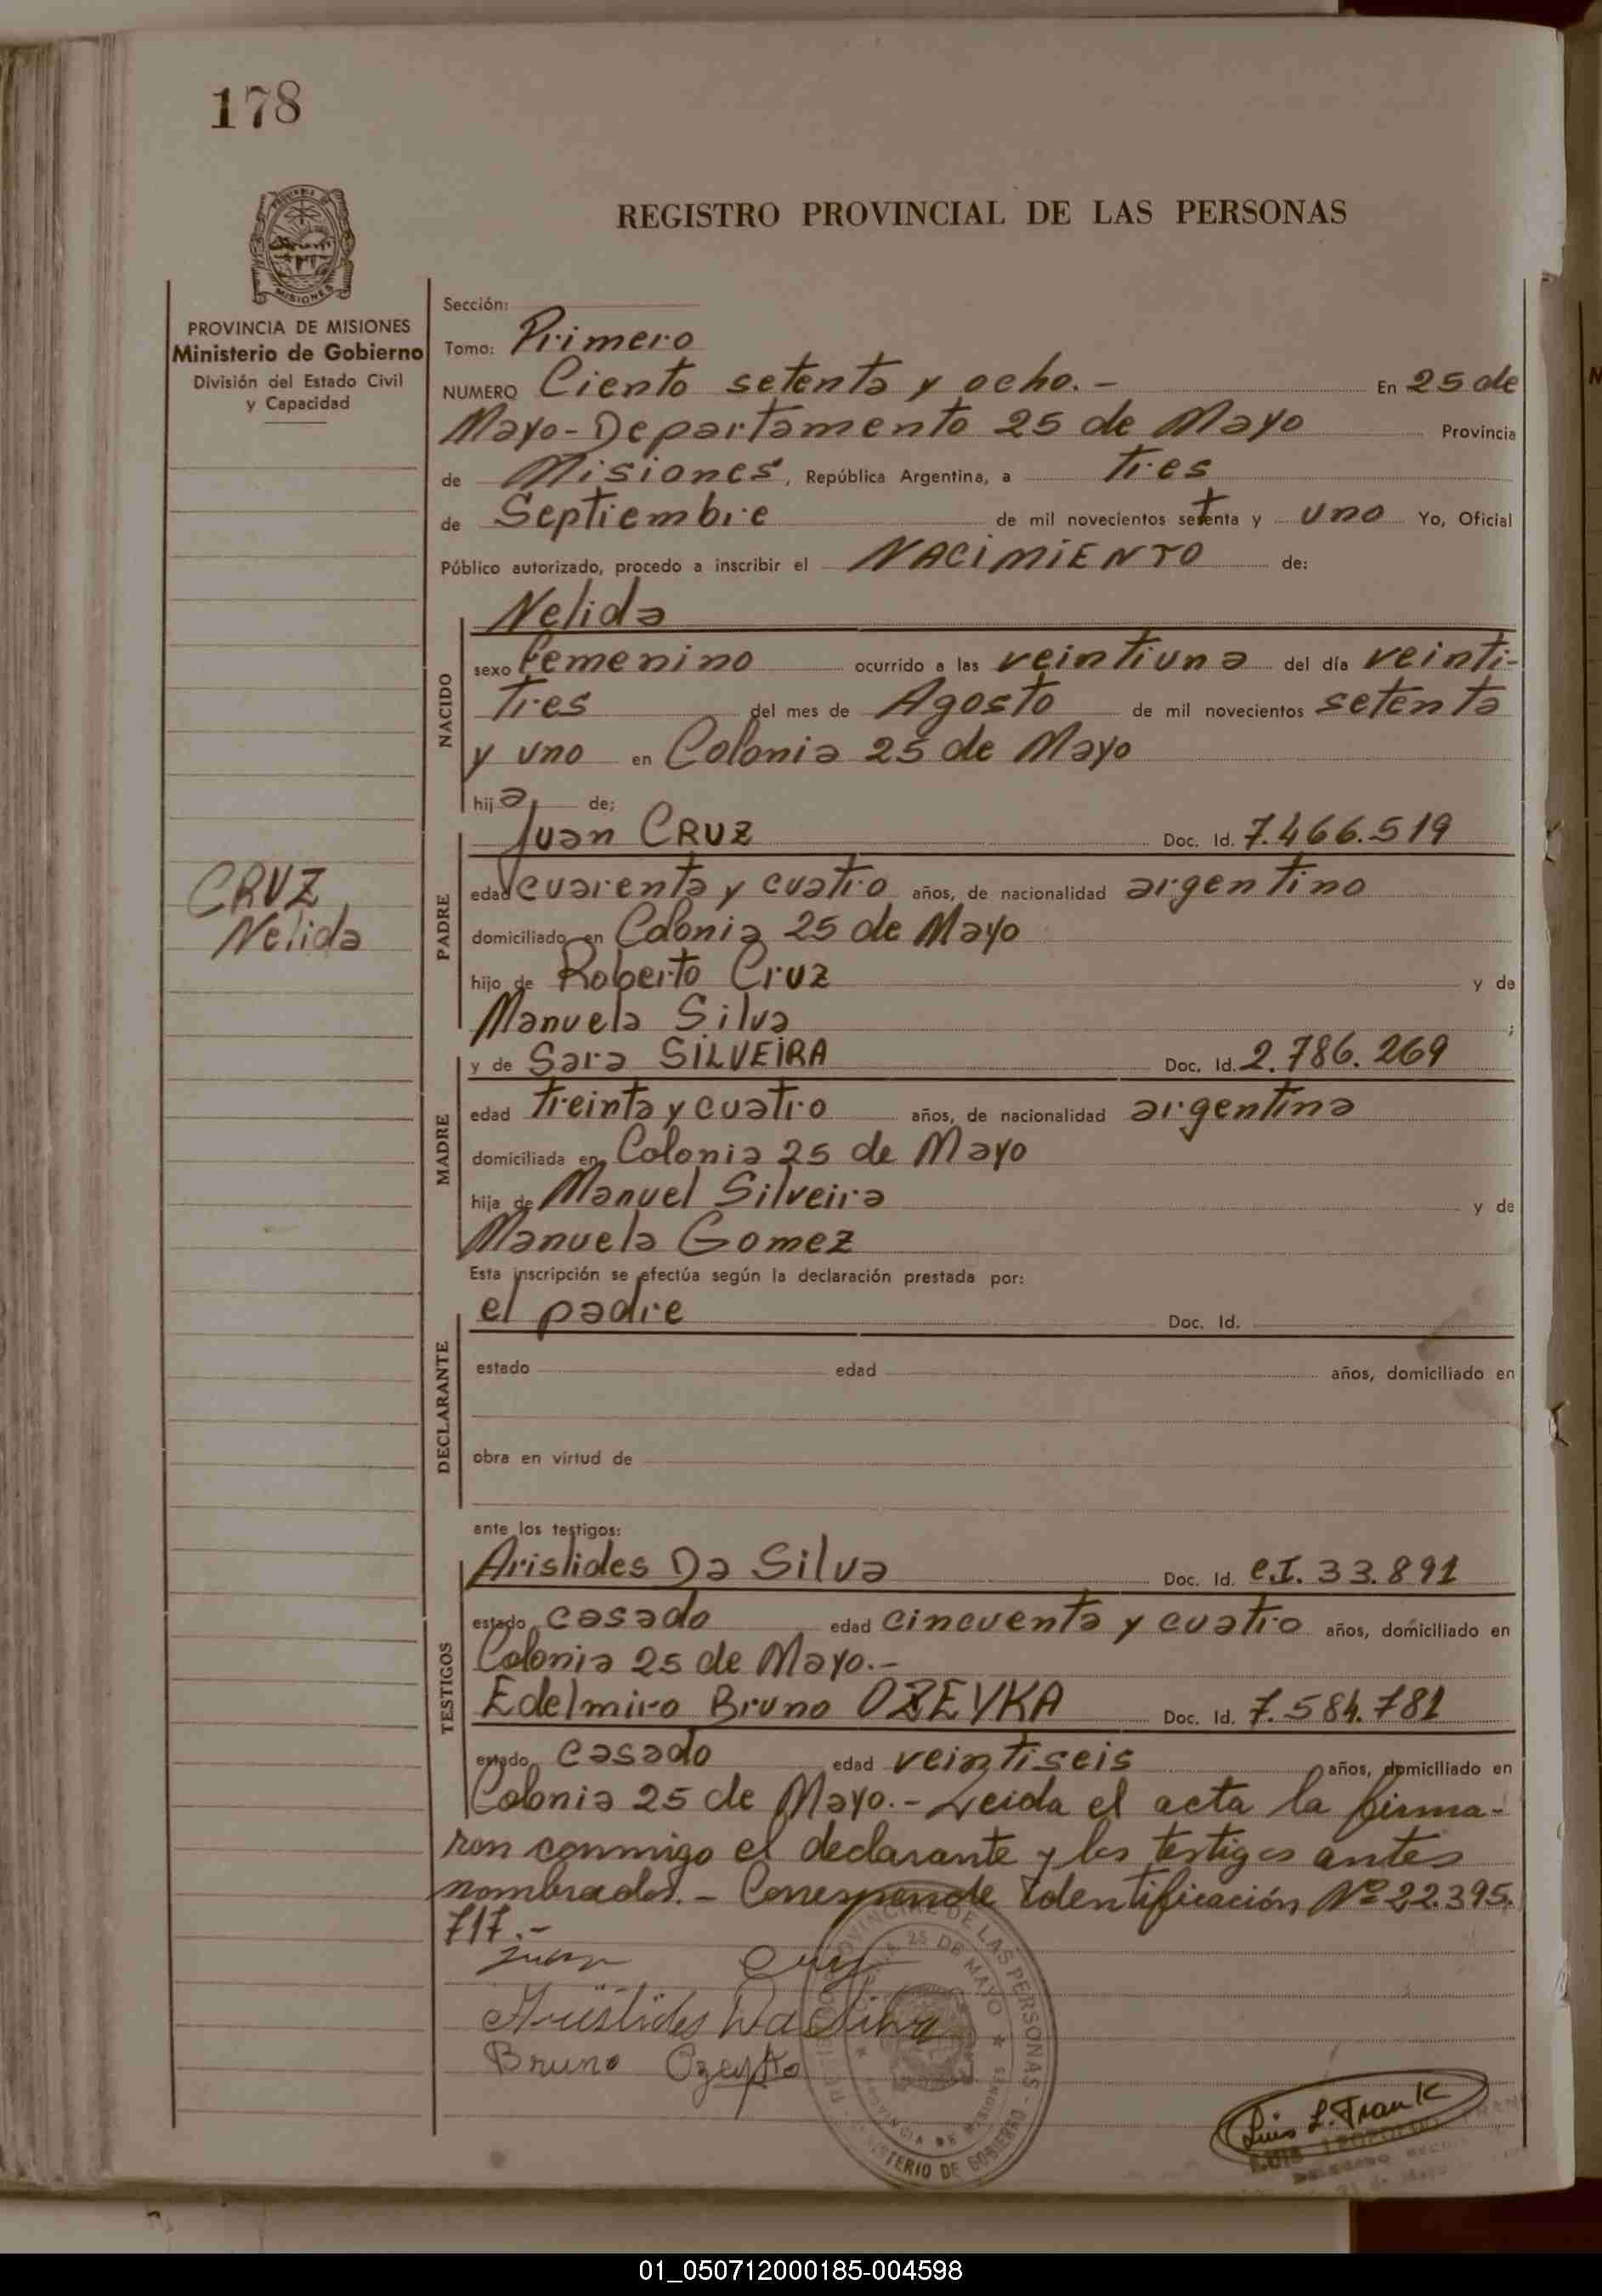 178
PROVINCIA DE MISIONES
Ministerio de Gobierno
División del Estado Civil
y Capacidad
REGISTRO PROVINCIAL DE LAS PERSONAS
Sección:
Tomo: Primero
NUMERO Ciento setenta y ocho.- En 25 de
Mayo-Departamento 25 de Mayo Provincia
de Misiones, República Argentina, a tres
de Septiembre de mil novecientos setenta y uno Yo, Oficial
Público autorizado, procedo a inscribir el NACIMIENTO de:
NACIDO
Nelida
sexo femenino ocurrido a las veintiuna del día veinti-
tres del mes de Agosto de mil novecientos setenta
y uno en Colonia 25 de Mayo
hija de;
CRUZ
Nelida
PADRE
Juan CRUZ Doc. Id. 7.466.519
edad cuarenta y cuatro años, de nacionalidad argentino
domiciliado en Colonia 25 de Mayo
hijo de Roberto Cruz y de
Manuela Silva ;
MADRE
y de Sara SILVEIRA Doc. Id. 2.786.269
edad treinta y cuatro años, de nacionalidad argentina
domiciliada en Colonia 25 de Mayo
hija de Manuel Silveira y de
Manuela Gomez
Esta inscripción se efectúa según la declaración prestada por:
DECLARANTE
el padre Doc. Id.
estado edad años, domiciliado en
obra en virtud de
ante los testigos:
TESTIGOS
Aristides Da Silva Doc. Id. C.I. 33.891
estado casado edad cincuenta y cuatro años, domiciliado en
Colonia 25 de Mayo.-
Edelmiro Bruno OZEYKA Doc. Id. 7.584.781
estado casado edad veintiseis años, domiciliado en
Colonia 25 de Mayo.- Leida el acta la firma-
ron conmigo el declarante y los testigos antes
nombrados.- Corresponde identificación Nº 22.395.
717.-
Juan Cruz
Aristides Da Silva
Bruno Ozeyka
Luis L. Frank
01_050712000185-004598